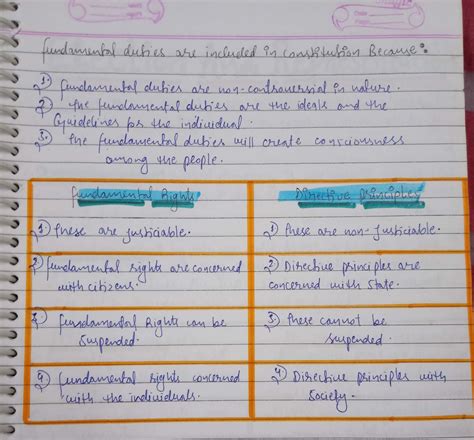 fundamental duties are included in constitution Because:
1. fundamental duties are non-controversial in nature.
2. The fundamental duties are the ideals and the
Guidelines for the individual.
3. The fundamental duties will create consciousness
among the people.
fundamental Rights
Directive principles
1) These are justiciable.
1) These are non-Justiciable.
2) fundamental rights are concerned
with citizens.
2) Directive principles are
concerned with State.
3. fundamental Rights can be
Suspended.
3. These cannot be
suspended.
4) fundamental rights concerned
with the individuals.
4) Directive principles with
Society.